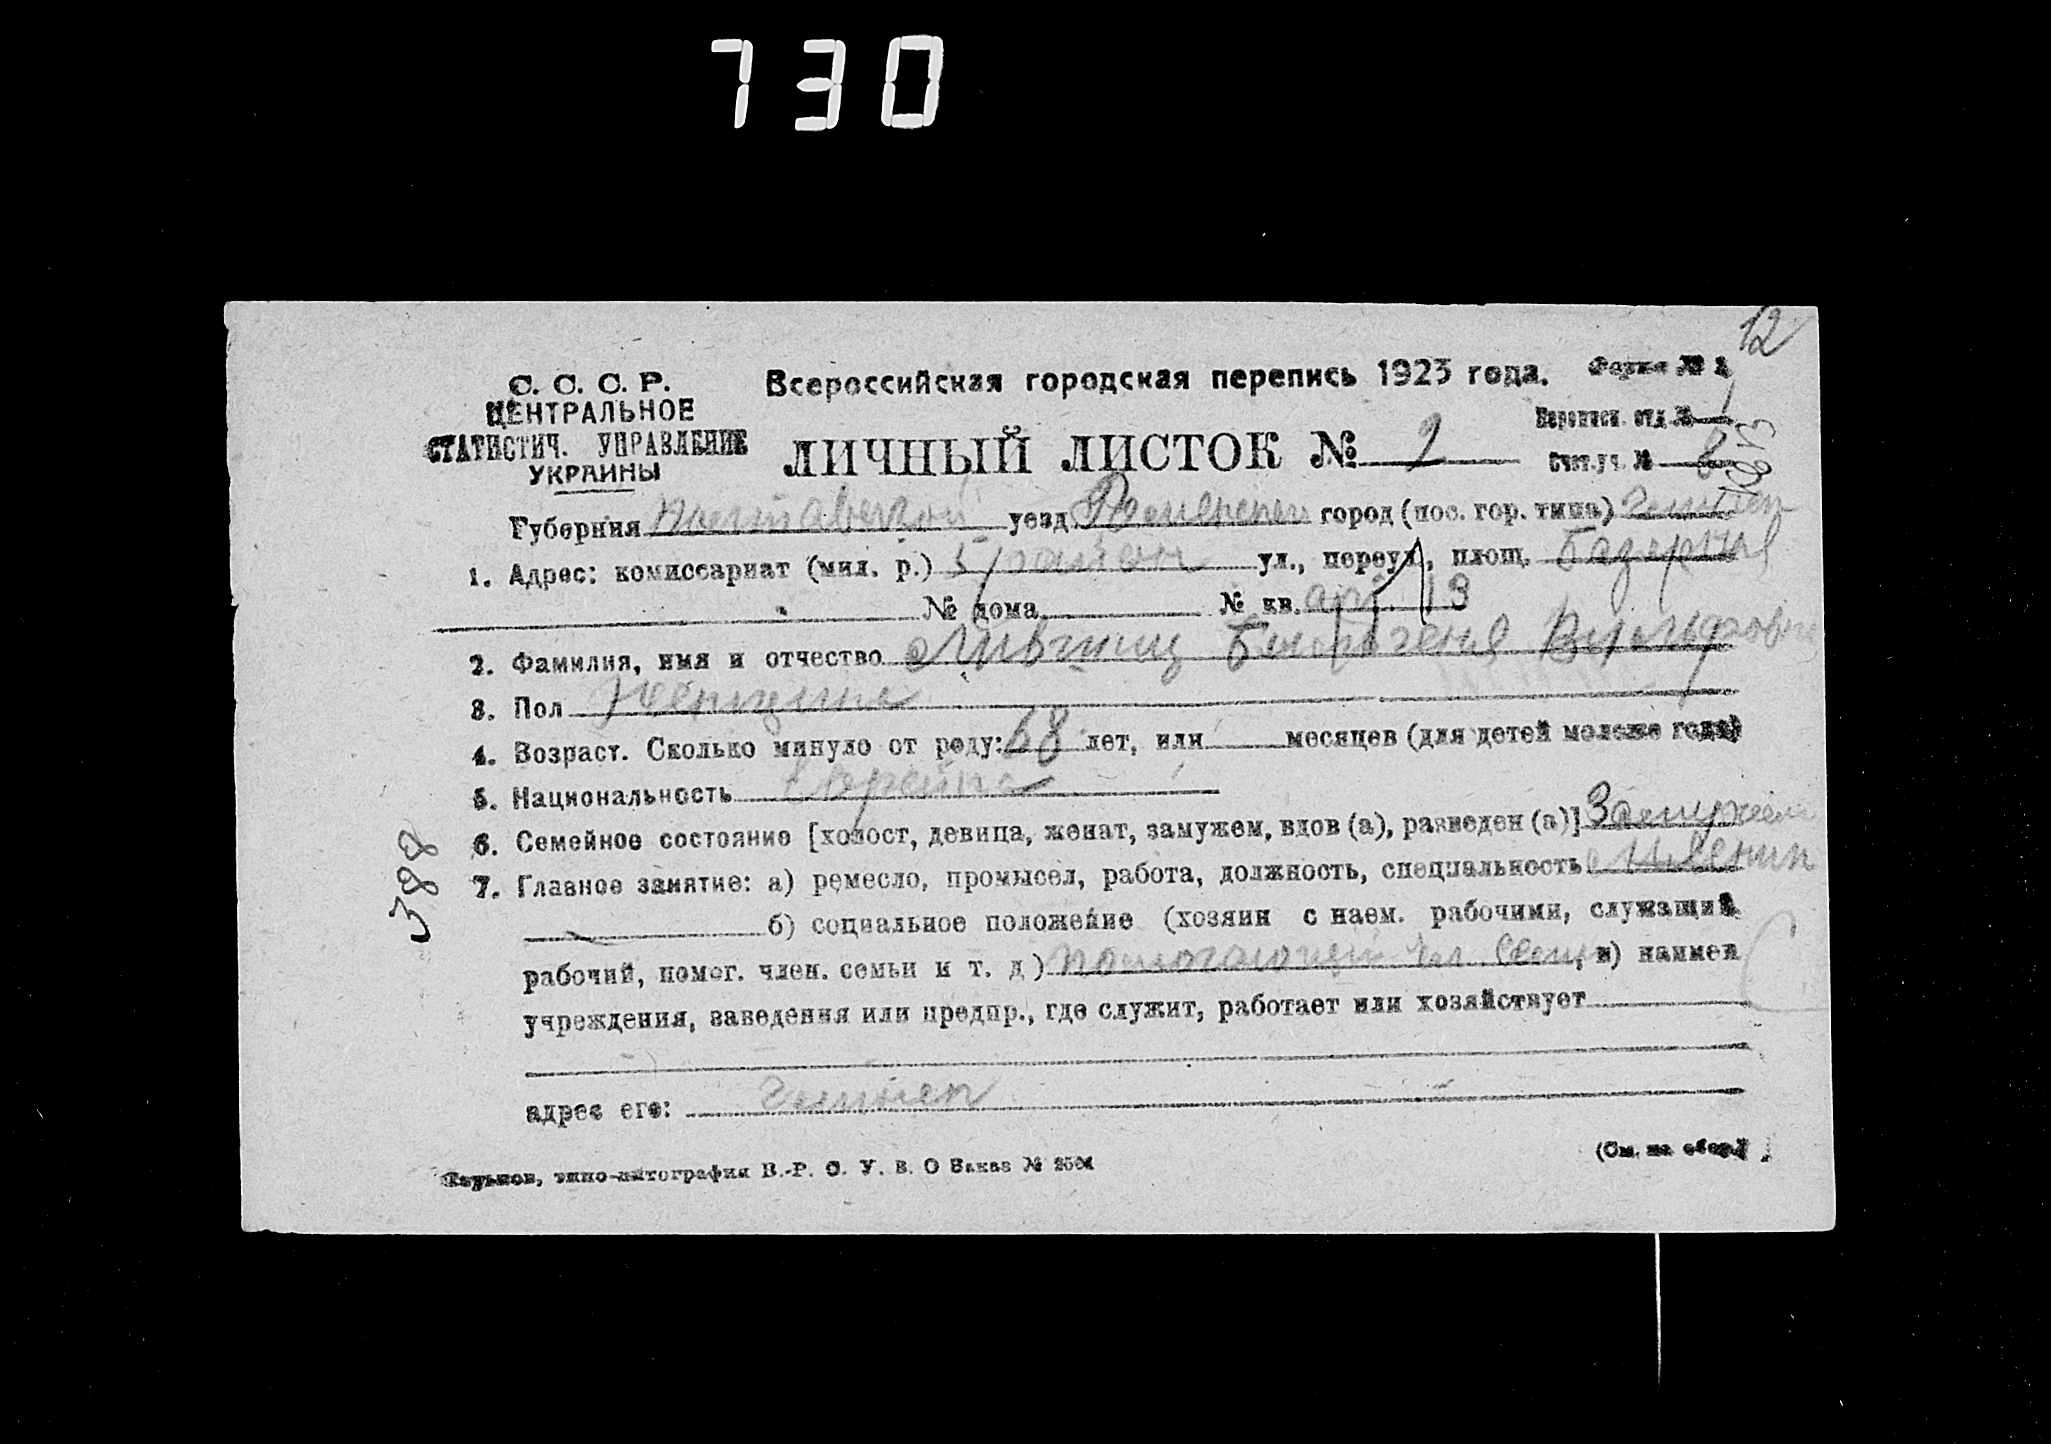 730
12
С. С. С. Р.
ЦЕНТРАЛЬНОЕ
СТАТИСТИЧ. УПРАВЛЕНИЕ
УКРАИНЫ
Всероссийская городская перепись 1923 года. Форма № 1
Переписн. отд. № 1
ЛИЧНЫЙ ЛИСТОК № 2 Счет.уч. № 8
Губерния уезд город (пос. гор. типа)
1. Адрес: комиссариат (мил. р.) ул., переул., площ. Базарная
№ дома № кв. 13
2. Фамилия, имя и отчество Лившиц Вольфовна
3. Пол Женщина
4. Возраст. Сколько минуло от роду: 68 лет, или месяцев (для детей моложе года)
5. Национальность Еврейка
6. Семейное состояние [холост, девица, женат, замужем, вдов (а), разведен (а)] Замужем
388
7. Главное занятие: а) ремесло, промысел, работа, должность, специальность
б) социальное положение (хозяин с наем. рабочими, служащий
рабочий, помог. член. семьи и т. д) помогающий чл. семьи, в) наимен
учреждения, заведения или предпр., где служит, работает или хозяйствует
адрес его:
(См. на обор.)
Харьков, типо-литография В.-Р. С. У. В. О Заказ №